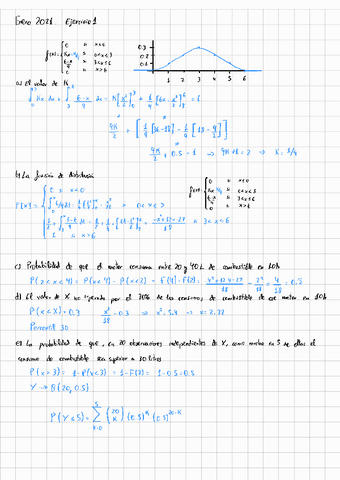 Enero 2021 Ejercicio 1
f(x)= { 0 si x<0
Kx = x/9 si 0≤x<3
6-x/9 si 3≤x≤6
0 si x>6
0.3
0.2
0.1
1 2 3 4 5 6
a) El valor de K
∫₀³ Kx dx + ∫₃⁶ 6-x/9 dx = K[x²/2]₀³ + 1/9[6x - x²/2]₃⁶ = 1
9K/2 + [1/9[36-18] - 1/9[18 - 9/2]]
9K/2 + 0.5 - 1 → 9K+1=2 → K = 1/9
b) La función de distribución
F(x)= { 0 si x<0
0<x<3
3≤x≤6
1 si x>6
f(x)= { 0 si x<0
c) Probabilidad de que el motor consuma entre 20 y 40 L de combustible en 10h
P(2<x<4) = P(x<4) - P(x<2) = F(4) - F(2)
d) El valor de X no superado por el 30% de los consumos de combustible de ese motor en 10h
P(x<X) = 0.3 x²/18 = 0.3 → x² = 5.4 → x = 2.32
Percentil 30
e) La probabilidad de que, en 20 observaciones independientes de X, como mucho en 5 de ellas el
consumo de combustible sea superior a 30 litros
P(x>3) = 1-P(x<3) = 1-F(3) = 1-0.5 = 0.5
Y → B(20, 0.5)
P(Y≤5) = ∑ₖ₌₀⁵ (20 K) (0.5)ᴷ (0.5)²⁰⁻ᴷ